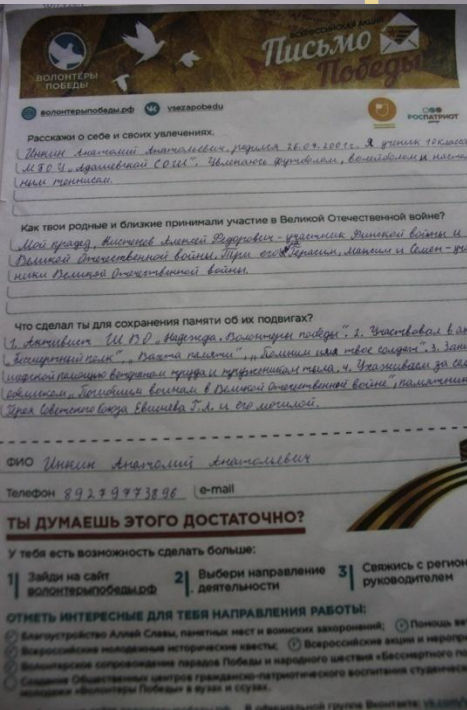 ВСЕРОССИЙСКАЯ АКЦИЯ
Письмо
Победы
ВОЛОНТЁРЫ
ПОБЕДЫ
волонтерыпобеды.рф vsezapobedu
РОСПАТРИОТ
Расскажи о себе и своих увлечениях.
Инкин Анатолий Анатольевич, родился Я ученик 10 класса
МБОУ „Адашевская СОШ". Увлекаюсь футболом, волейболом и
ным теннисом.
Как твои родные и близкие принимали участие в Великой Отечественной войне?
Мой прадед, Алексей Федорович - участник Финской войны и
Великой Отечественной войны. Три его Герасим, Максим и Семен - уча
ники Великой Отечественной войны.
Что сделал ты для сохранения памяти об их подвигах?
1. Активист ШВО „Надежда. Волонтеры победы". 2. Участвовал в
„Бессмертный полк", „Вахта памяти", „Помним имя твое солдат". 3.
помощью ветеранам труда и труженикам тыла. 4. Ухаживаем за
„Погибшим воинам в Великой Отечественной войне",
Героя Советского Союза Евишева Г.А. и его могилой.
ФИО Инкин Анатолий Анатольевич
Телефон 89279773896 e-mail
ТЫ ДУМАЕШЬ ЭТОГО ДОСТАТОЧНО?
У тебя есть возможность сделать больше:
1 Зайди на сайт
волонтерыпобеды.рф
2 Выбери направление
деятельности
3 Свяжись с регион
руководителем
ОТМЕТЬ ИНТЕРЕСНЫЕ ДЛЯ ТЕБЯ НАПРАВЛЕНИЯ РАБОТЫ:
Благоустройство Аллей Славы, памятных мест и воинских захоронений; Помощь ве
Всероссийские молодежные исторические квесты; Всероссийские акции и меропр
Волонтерское сопровождение парадов Победы и народного шествия «Бессмертного по
Создание Общественных центров гражданско-патриотического воспитания студенческ
молодежи «Волонтеры Победы» в вузах и ссузах.